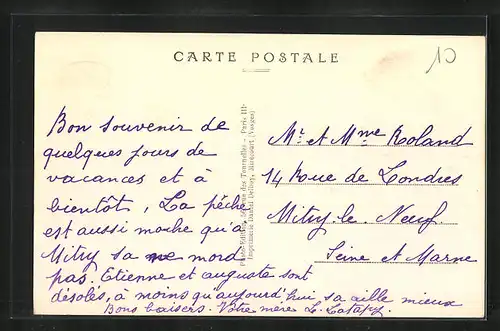 CARTE POSTALE
10
Bon souvenir de
quelques jours de
vacances et à
bientôt, La pêche
est aussi moche qu'à
Mitry sa me mord
pas. Etienne et auguste sont
désolés, à moins qu'aujourd'hui sa aille mieux
Bons baisers. Votre mère L.
Mr et Mme Roland
14 Rue de Londres
Mitry-le-Neuf
Seine et Marne
Photo-Edition, des Tournelles - Paris III
Imprimerie Daniel Delboy, Mirecourt (Vosges)